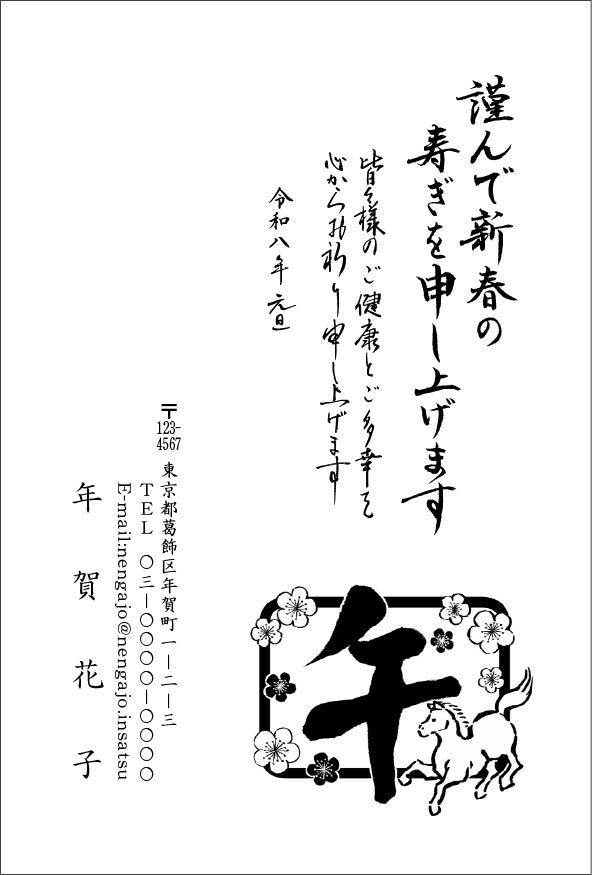 謹んで新春の
寿ぎを申し上げます
皆々様のご健康とご多幸を
心からお祈り申し上げます
令和八年 元旦
〒123-4567
東京都葛飾区年賀町一ー二ー三
TEL 〇三ー〇〇〇〇ー〇〇〇〇
E-mail:nengajo@nengajo.insatsu
年賀花子
午